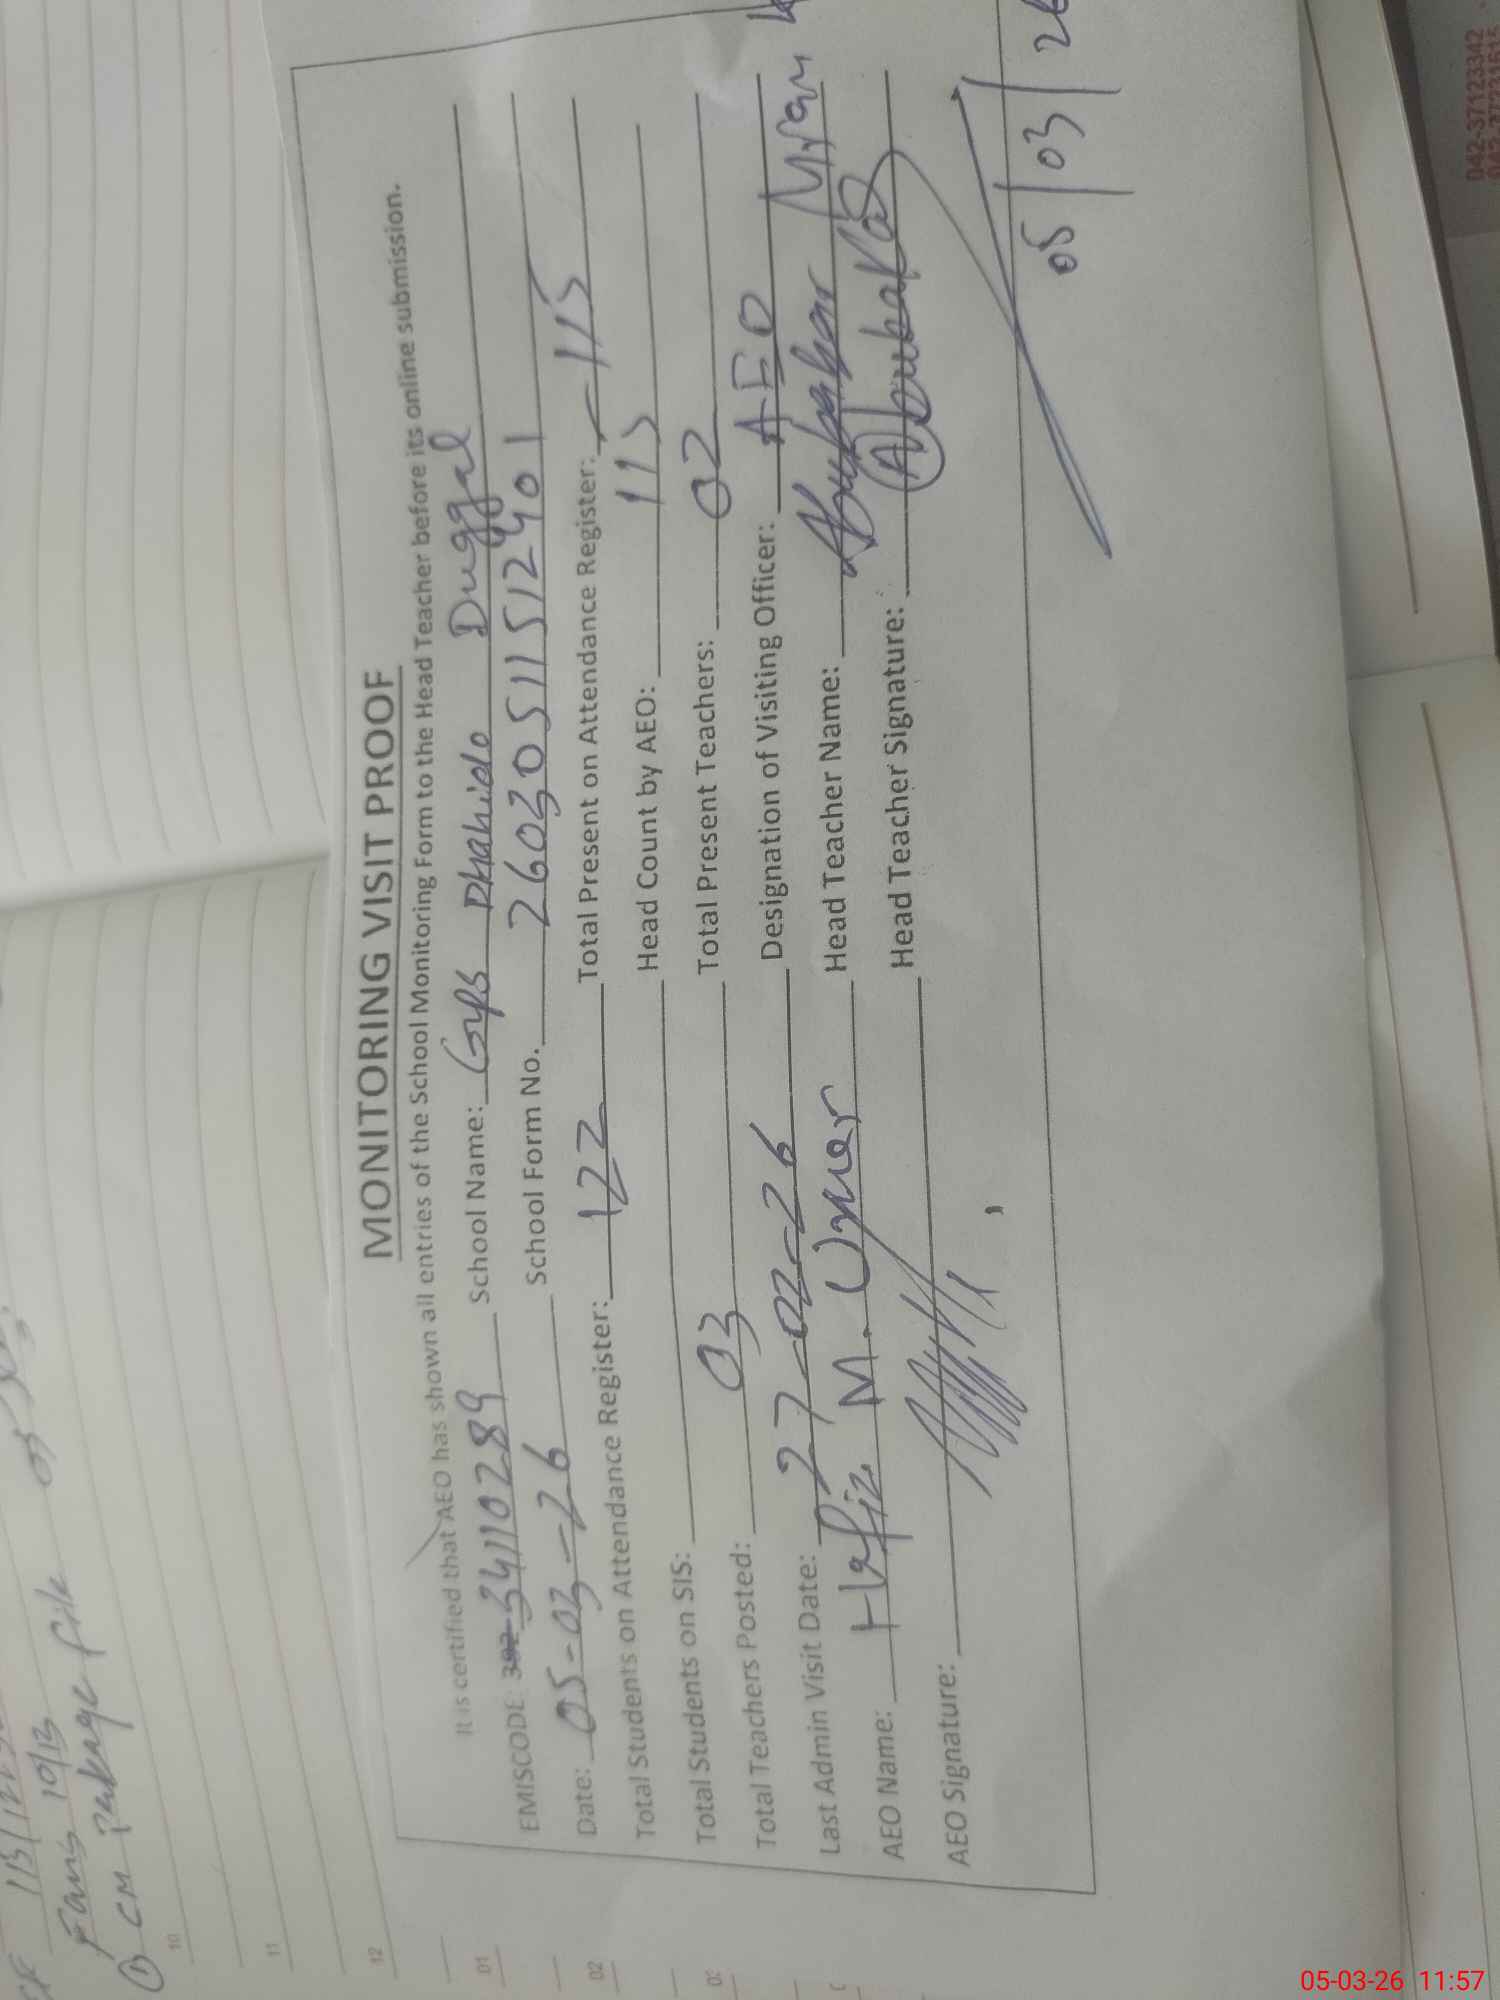 MONITORING VISIT PROOF
It is certified that AEO has shown all entries of the School Monitoring Form to the Head Teacher before its online submission.
EMISCODE: 34110289 School Name: GPS Dhahido Duggal
Date: 05-03-26 School Form No. 26030511512401
Total Students on Attendance Register: 122 Total Present on Attendance Register: 115
Total Students on SIS: Head Count by AEO: 115
Total Teachers Posted: 03 Total Present Teachers: 02
Last Admin Visit Date: 27-02-26 Designation of Visiting Officer: AEO
AEO Name: Hafiz M. Umer Head Teacher Name: Abubakar
AEO Signature: Head Teacher Signature: Abubakar
05/03/26
10/13
① CM Package file
10
11
12
01
02
042-37123342
05-03-26 11:57